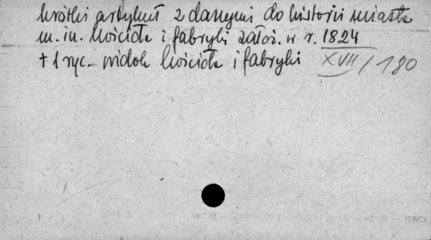 krótki artykuł z danymi do historii miasta
m. in. kościoła i fabryki założ. w r. 1824
+ 1 ryc. – widok kościoła i fabryki XVII/180